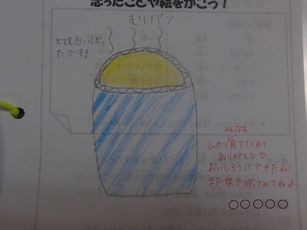 思ったことや絵をかこう！
むしパン
とてもおいしかっ
たです。
しっかり見てくれて
ありがとう♡
おいしそうにできたね！
また家でも作ってみてね♪
○○○○○